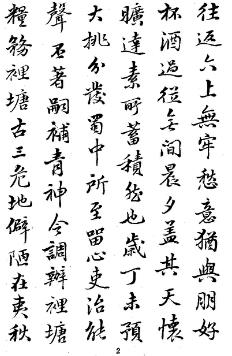 往返六上無牢愁意猶與朋好
杯酒過從無間晨夕蓋其天懷
曠達素所蓄積然也歲丁未預
大挑分發蜀中所至留心吏治能
聲丕著嗣補青神令調辦裡塘
糧務裡塘古三危地僻陋在夷秋
2